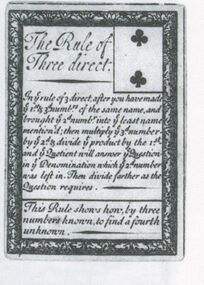 The Rule of
Three direct.
In ẙ rule of 3 direct, after you have made
ẙ 1st & 3d numbrs of the same name, and
brought ẙ 2d numbr into ẙ least name
mention'd; then multiply ẙ 3d number
by ẙ 2d & divide ẙ product by the 1st
and ẙ Quotient will answer ẙ Question
in ẙ Denomination which ẙ 2d number
was left in. Then divide farther as the
Question requires.
This Rule shows how, by three
numbers known, to find a fourth
unknown.